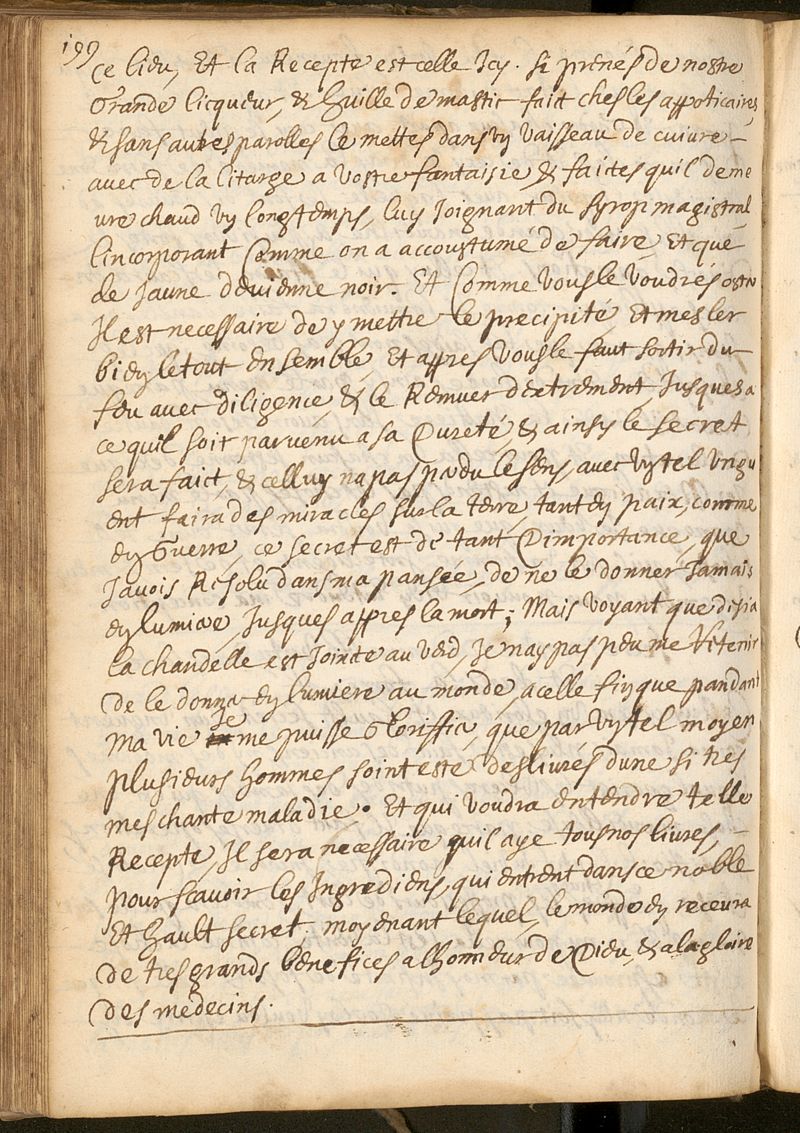 199
Ce lieu, Et la Recepte est celle Icy. Si prenés de nostre
Grande licqueur, & huille de mastic faict ches les appoticaires,
& sans autres parolles le mettes dans vy vaisseau de cuivre –
avec de la litarge a vostre fantaisie, & faictes quil deme
ure chaud vy longtemps, luy Joignant du syrop magistral
lincorporant Comme on a accoustumé de faire, Et que
de Jaune devienne noir. Et Comme vous le voudrés oster
Il est necessaire de y mettre le precipité, Et mesler
biey le tout ensemble, Et appres vous le faut sortir du
feu avec diligence, & le Remuer dextrement, Jusques a
ce quil soit parvenu a sa Dureté, & ainsy le secret
sera faict, & celluy na pas perdu le sens, avec vy tel Ungu
ent faira des miracles sur la terre, tant ey paix, comme
ey Guerre, ce secret est de tant Dimportance, que
Javois Resolu dans ma pansée, de ne le donner Jamais
ey lumiere, Jusques appres la mort; Mais voyant que desia
la chandelle est Jointe au verd, Je nay pas peu me Retenir
de le donner ey lumiere au monde, a celle fiy que pandant
ma vie Je me puisse Gloriffier, que par vy tel moyen
plusieurs hommes soint esté deslivrés dune si tres
meschante maladie. Et qui voudra entendre telle
Recepte, Il sera necessaire quil aye tous nos livres, –
pour scavoir les Ingrediens, qui entrent dans ce noble
Et hault secret: moyenant lequel, le monde ey recevra
de tres grands benefices a lhonneur de Dieu, & a la gloire
des medecins.